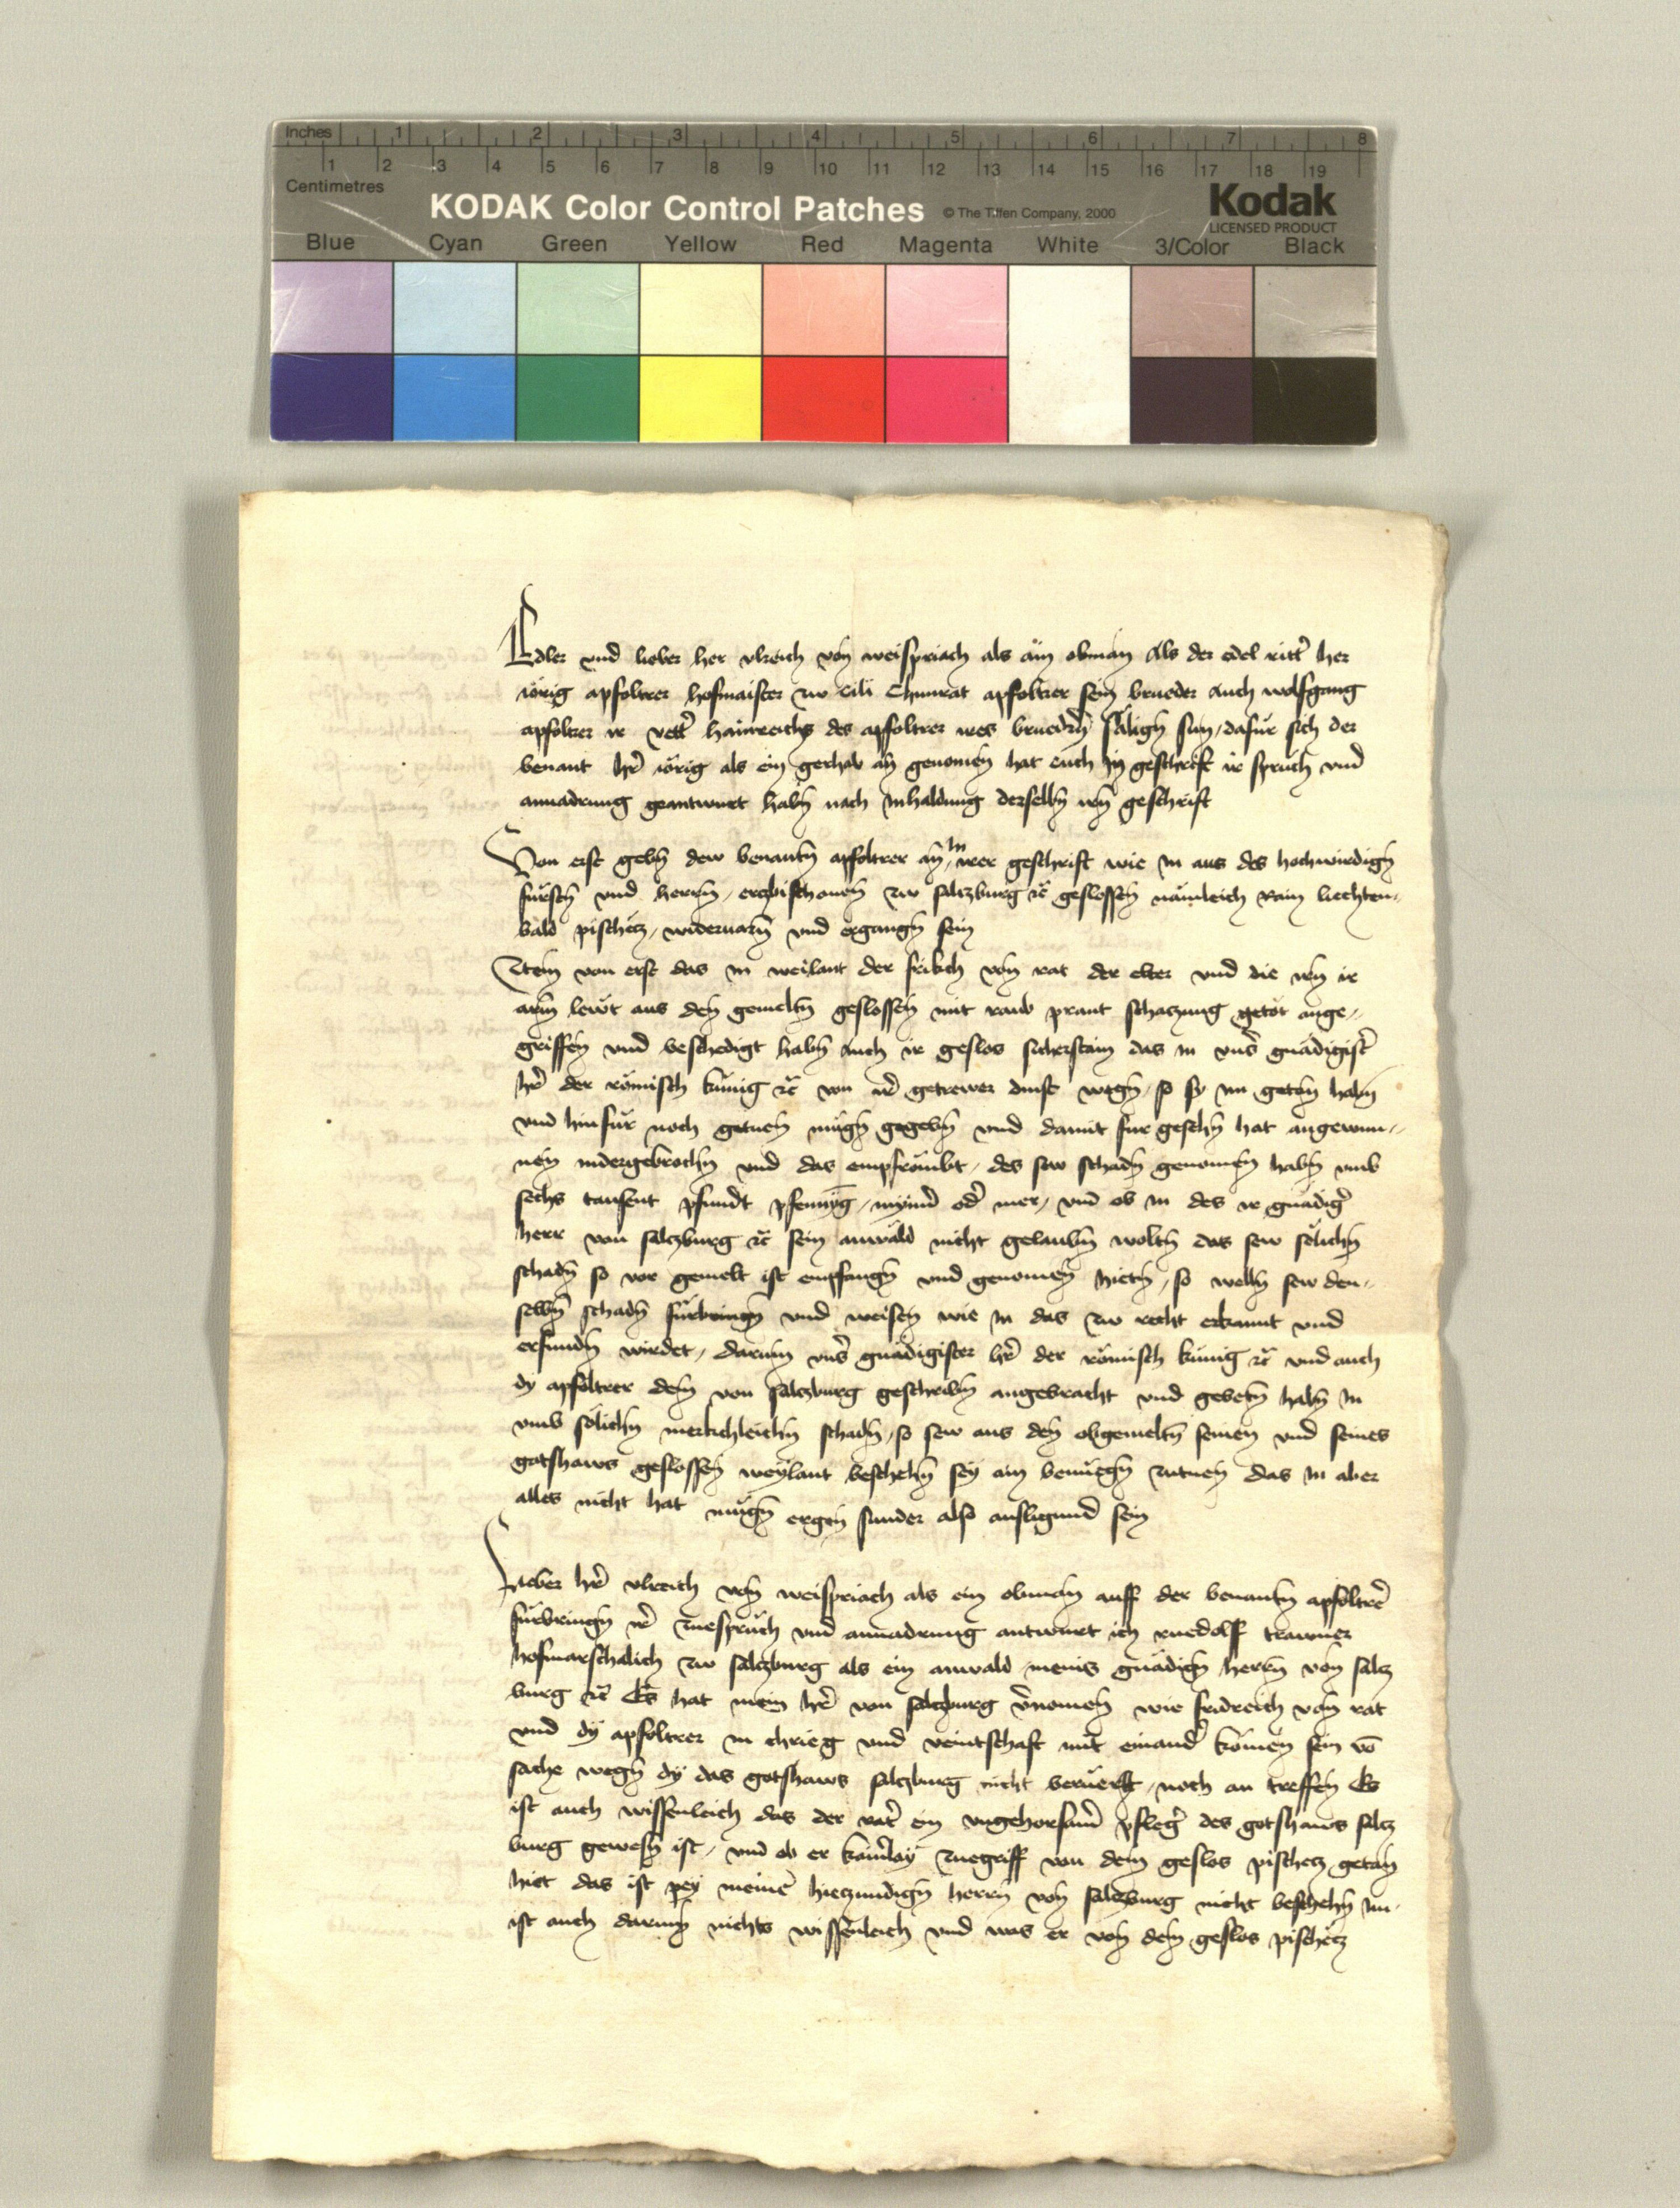 Inches 1 2 3 4 5 6 7 8
1 2 3 4 5 6 7 8 9 10 11 12 13 14 15 16 17 18 19
Centimetres
KODAK Color Control Patches © The Tiffen Company, 2000 Kodak
LICENSED PRODUCT
Blue Cyan Green Yellow Red Magenta White 3/Color Black
Edler und lieber her vlreich von weispriach als ain obman Als der edel ritt͛ her
iörig apfoltrer hofmaister zw Cili Chunrat apfoltrer sein brueder auch wolfgang
apfoltrer ir vett͛ hainreichs des apfoltrer ires bruedͤrn säligñ sun, dafür sich der
benant hr͛ iörig als ein gerhab an genomen hat euch in geschrift ir spruch vnd
anuadrung geantwurt habñ nach Inhaldung derselbñ irñ geschrift
Von erst gebñ dew benantñ apfoltrer an In irer geschrift wie in aus des hochwirdigñ
fürstñ vnd herrñ, erczbischouen zw salczburg ꝛc̈ geslossen näinleich Rain liechten-
bald pischecz, widerwarñ vnd ergangñ sein
Item von erst das in weilant der von rat der elter vnd die irñ ir
arm lewt aus den gemeltñ geslossen mit raub prant schaczung getöt ange-
griffen vnd beschedigt habñ Auch ir geslos sicherstain das in vns͛ gnädigist͛
hr͛ der römisch künig ꝛc̈ von ir͛ getrewer dinst wegñ, so sy im getan habñ
vnd hinfür noch getuen mügñ gegebñ vnd damit fur gesehñ hat angewun-
nen nidergebrochñ vnd das empfrömbt, des sew schadñ genomen habñ vmb
sechs tausent pfundt pfennyg, mynd͛ od͛ mer, vnd ob in des ir gnädig͛
herr von salczburg ꝛc̈ sein anwäld nicht gelaubñ woltñ das sew sölichñ
schadñ so vor gemelt ist empfangñ vnd genomen hietñ, so wellñ sew den-
selbñ schadñ fürbringñ vnd weisen wie in das zw recht erkannt vnd
erfundñ wirdet, darum vns͛ gnädigister hr͛ der römisch künig ꝛc̈ vnd auch
dy apfoltrer dem von salczburg geschribñ angebracht vnd gebetñ habñ in
vmb sölichñ merkchleichñ schadñ, so sew aus den obgemeltñ seinen vnd seines
gotshaws geslossen weylant beschehñ sey ain benüegñ zutuen das in aber
alles nicht hat mügñ ergen sunder also ausligund sein
Lieber hr͛ vlreich von weispriach als ein obman auff der benantñ apfoltr͛
fürbringñ ir͛ zuespruch vnd anuadrung antwurt ich ruedolff trawner
hofmarschalich zw salczburg als ein anwald meins gnädigñ herrñ von salcz
burg ꝛc̈ Es hat mein hr͛ von salczburg v͛nomen wie fridreich von rat
vnd dy apfoltrer in chrieg vnd veintschaft mit einand͛ komen sein vō
sache wegñ dy das gotshaws salczburg nicht beruertt, noch an treffen Es
ist auch wissenleich das der rat͛ ein vngehorsam͛ pfleg͛ des gotshaws salcz
burg gewesñ ist, vnd ob er kainerlay zuegriff von dem geslos pischecz getan
hiet das ist pey meinē hieczundigñ herrñ von salczburg nicht beschehñ Im
ist auch darumb nichts wissenleich vnd was er von dem geslos pischecz